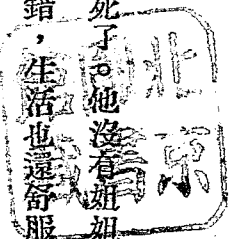 死了。他沒有姐姐
錯，生活也還舒服
北京